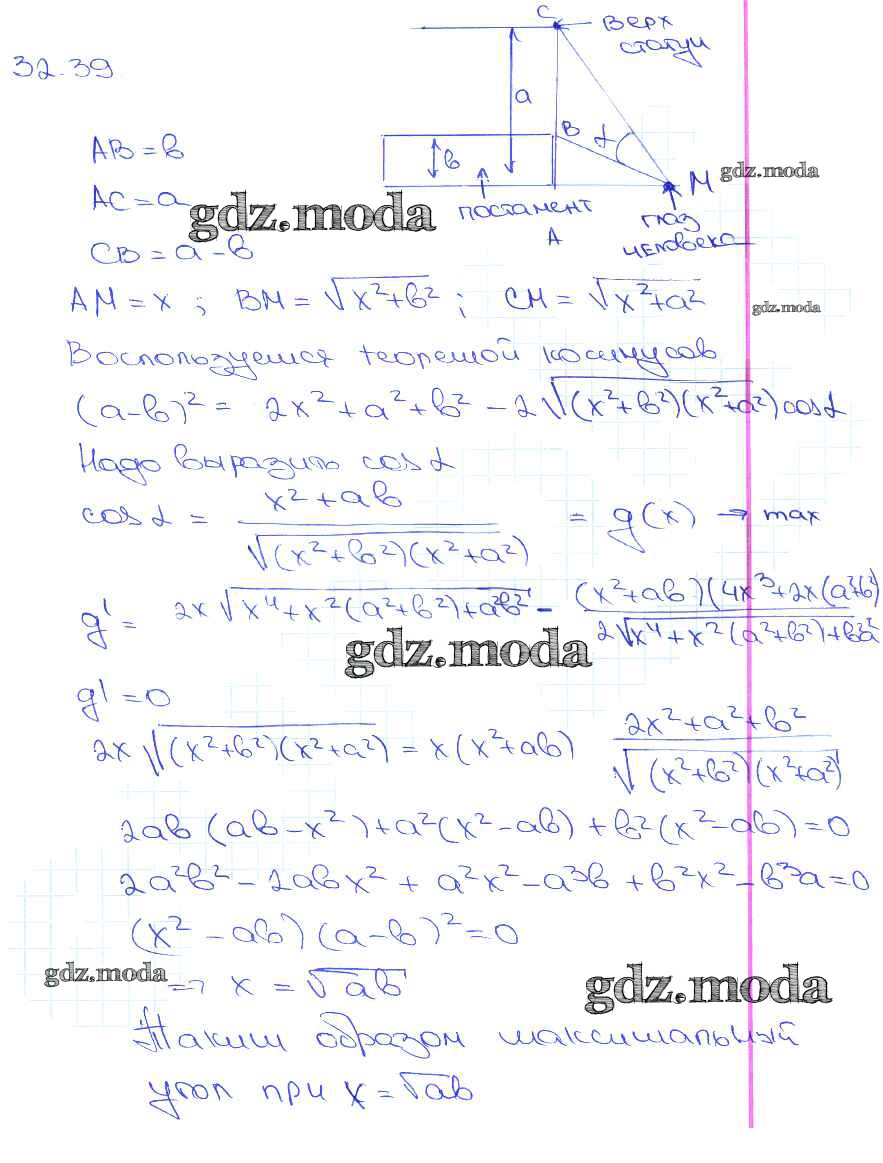 32.39
C
Верх
статуи
a
AB = b
B
α
b
M
gdz.moda
AC = a
gdz.moda
постамент
глаз
человека
A
CB = a - b
AM = x ; BM = √(x² + b²) ; CM = √(x² + a²)
gdz.moda
Воспользуемся теоремой косинусов
(a-b)² = 2x² + a² + b² - 2√((x²+b²)(x²+a²)) cos α
Надо выразить cos α
cos α = (x² + ab) / √((x²+b²)(x²+a²)) = g(x) → max
g' = 2x√(x⁴ + x²(a²+b²) + a²b²) - (x²+ab)(4x³+2x(a²+b²) / 2√(x⁴ + x²(a²+b²) + b²a²)
gdz.moda
g' = 0
2x√((x²+b²)(x²+a²)) = x(x²+ab) (2x²+a²+b²) / √((x²+b²)(x²+a²))
2ab(ab-x²) + a²(x²-ab) + b²(x²-ab) = 0
2a²b² - 2abx² + a²x² - a³b + b²x² - b³a = 0
(x² - ab)(a-b)² = 0
gdz.moda
=> x = √ab
gdz.moda
Таким образом максимальный
угол при x = √ab